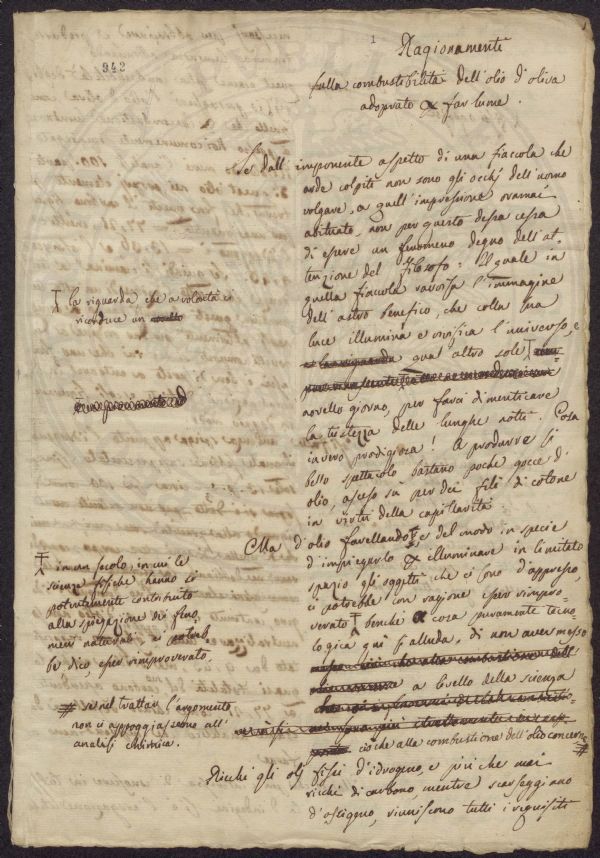 1
942
Ragionamenti
sulla combustibilità dell'olio d'oliva
adoprato far lume.
Se dall'imponente aspetto di una fiaccola che
arde colpiti non sono gli occhj dell'uomo
volgare, a quell'impressione oramai
abituato, non per questo dessa cessa
di essere un fenomeno degno dell'at-
tenzione del Filosofo: Il quale in
quella fiaccola ravvisa l'immagine
dell'astro benefico, che colla sua
luce illumina e vivifica l'universo, e
e la riguarda qual altro sole
novello giorno, per farci dimenticare
la tristezza delle lunghe notti. Cosa
invero prodigiosa! A produrre sì
bello spettacolo bastano poche gocce d'
olio, asceso sù per dei fili di cotone
in virtù della capillarità
la riguarda che a volontà ci
riconduce un
Ma d'olio favellando e del modo in specie
d'impiegarlo illuminare in limitato
spazio gli oggetti che ci sono d'appresso,
ci potrebbe con ragione esser rimpro-
verato benchè cosa puramente tecno-
logica quì si alluda, di non aver messo
a livello della scienza
ciocche alla combustione dell'olio concerne
in un secolo, in cui le
scienze fisiche hanno sì
potentemente contribuito
alla spiegazione dei feno-
meni naturali ci potreb-
be, dico, esser rimproverato,
# se nel trattar l'argomento
non ci appoggiassemo all'
analisi chimica.
Ricchi gli olj fissi d'idrogeno, e più che mai
ricchi di carbonio, mentre scarseggiano
d'ossigeno, riuniscono tutti i requisiti